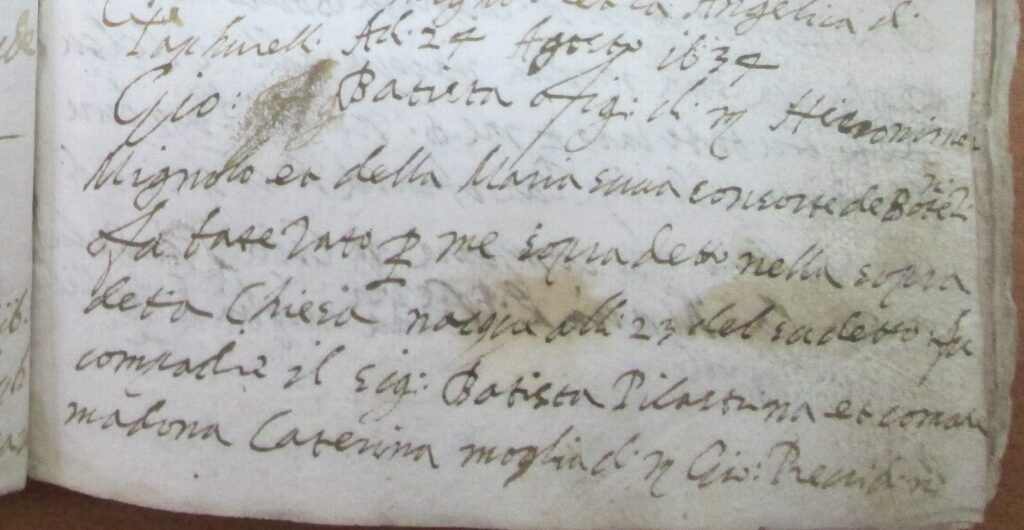 Angelica d.
Ad. 24 Agosto 1634
Gio: Batista fig: d. m Hieronimo
Mignolo et della Maria sua consorte de
fu batezato p me sopra detto nella sopra
detta Chiesa nacque alli 23 del sudetto fu
compadre il sig: Batista Pilastrina et comar
madona Caterina moglia d. m Gio: